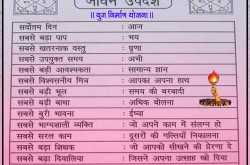 जीवन उपदेश
॥ युग निर्माण योजना ॥
सर्वोत्तम दिन : आज
सबसे बड़ा पाप : भय
सबसे खतरनाक वस्तु : घृणा
सबसे उपयुक्त समय : अभी
सबसे बड़ी आवश्यकता : सामान्य ज्ञान
सबसे विश्वसनीय मित्र : आपका अपना हाथ
सबसे बड़ी भूल : समय की बरबादी
सबसे बड़ी बाधा : अधिक बोलना
सबसे बुरी भावना : ईर्ष्या
सबसे भाग्यशाली व्यक्ति : जो अपने काम में संलग्न हो
सबसे सरल काम : दूसरों की गल्तियाँ निकालना
सबसे बड़ा शिक्षक : जो आपको सीखने की प्रेरणा दे
सबसे बड़ा दिवालिया : जिसने अपना उत्साह खो दिया